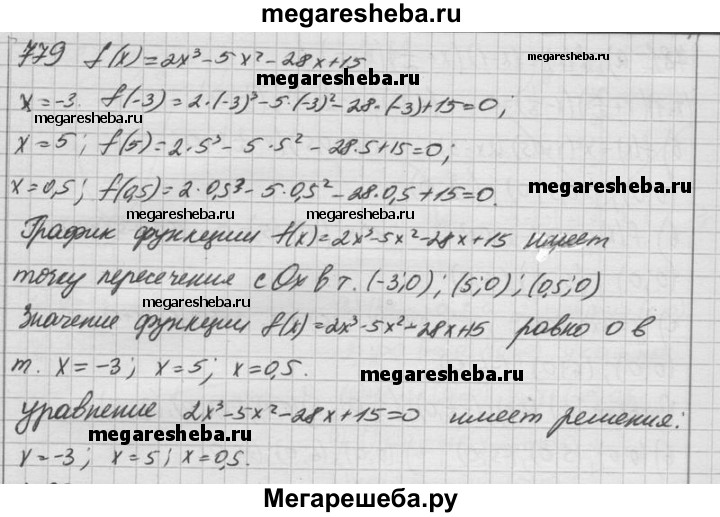 megaresheba.ru
779 f(x)=2x³-5x²-28x+15
megaresheba.ru
megaresheba.ru
x=-3. f(-3)=2·(-3)³-5·(-3)²-28·(-3)+15=0;
megaresheba.ru
x=5; f(5)=2·5³-5·5²-28·5+15=0;
x=0,5; f(0,5)=2·0,5³-5·0,5²-28·0,5+15=0.
megaresheba.ru
megaresheba.ru megaresheba.ru
График функции f(x)=2x³-5x²-28x+15 имеет
точку пересечение с Ox в т. (-3;0); (5;0); (0,5;0)
megaresheba.ru
Значение функции f(x)=2x³-5x²-28x+15 равно 0 в
т. x=-3; x=5; x=0,5.
megaresheba.ru
уравнение 2x³-5x²-28x+15=0 имеет решения:
megaresheba.ru
x=-3; x=5; x=0,5.
Мегарешеба.ру